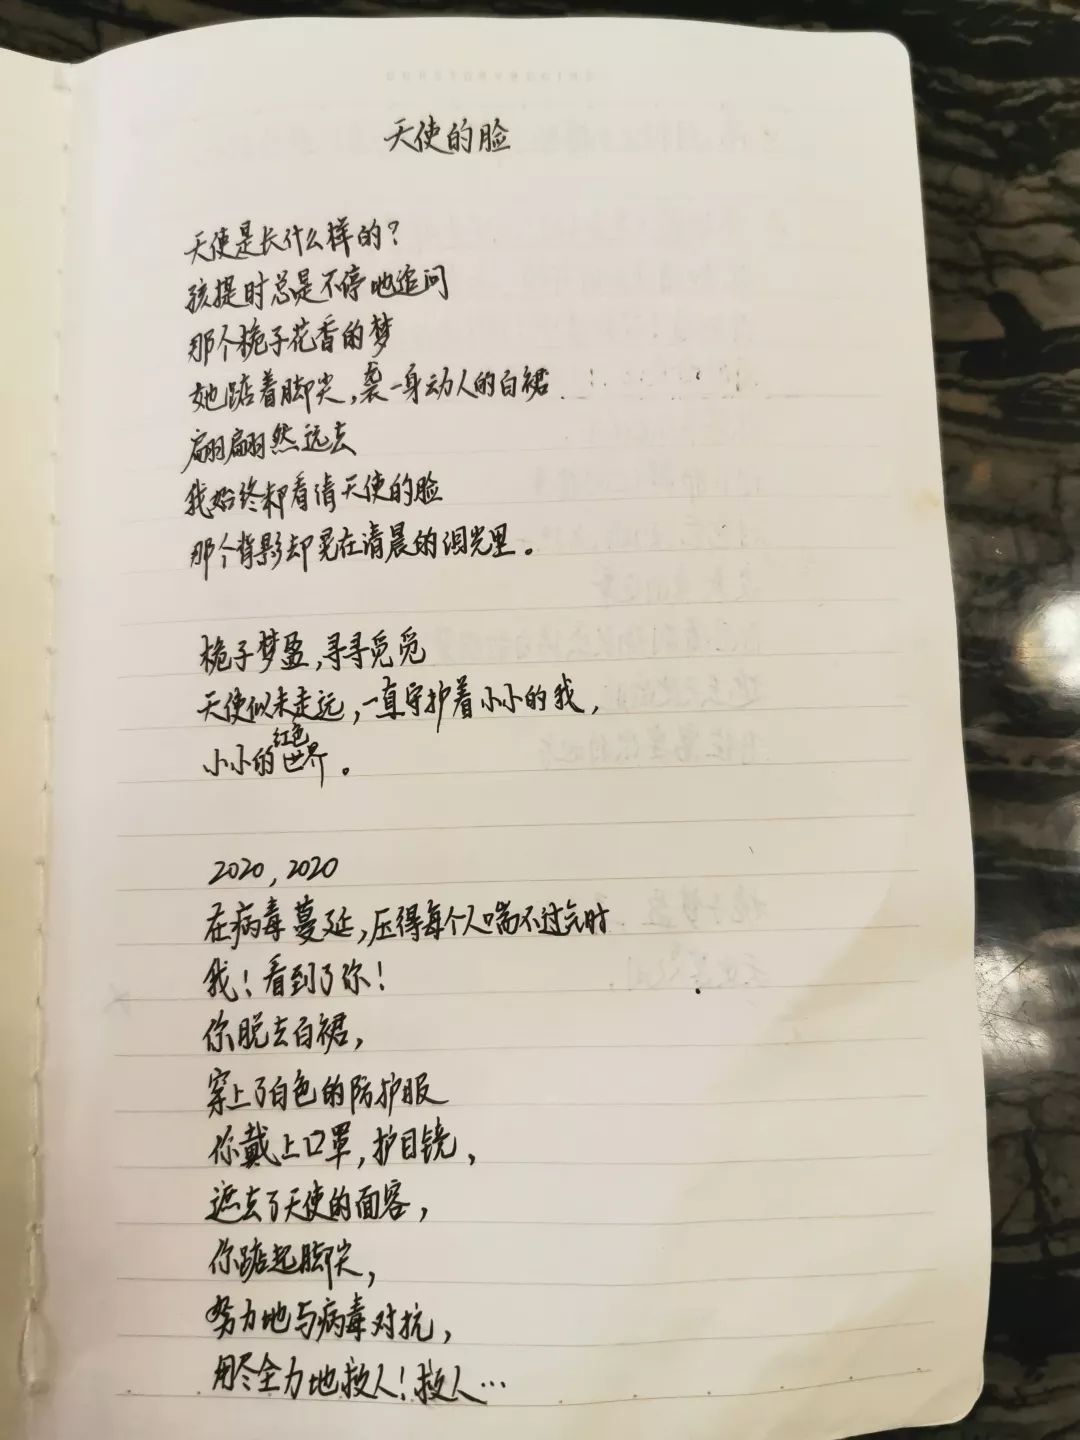 天使的脸
天使是长什么样的？
孩提时总是不停地追问
那个栀子花香的梦
她踮着脚尖，袭一身动人的白裙
翩翩然远去
我始终未看清天使的脸
那个背影却晃在清晨的泪光里。
栀子梦盈，寻寻觅觅
天使似未走远，一直守护着小小的我，
小小的红色世界。
2020，2020
在病毒蔓延，压得每个人喘不过气时
我！看到了你！
你脱去白裙，
穿上了白色的防护服
你戴上口罩，护目镜，
遮去了天使的面容，
你踮起脚尖，
努力地与病毒对抗，
用尽全力地救人！救人…